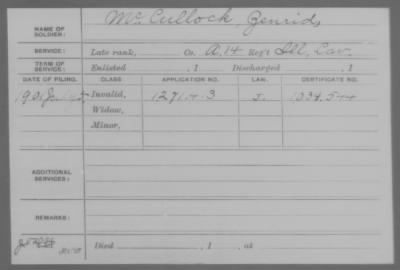 NAME OF SOLDIER: McCullock, Zenrids
SERVICE: Late rank, Co. A, 14 Reg't Ill. Cav.
TERM OF SERVICE: Enlisted , 1 Discharged , 1
DATE OF FILING. CLASS APPLICATION NO. LAW. CERTIFICATE NO.
1901 Invalid,
Widow,
Minor,
ADDITIONAL SERVICES:
REMARKS:
Died , 1 , at